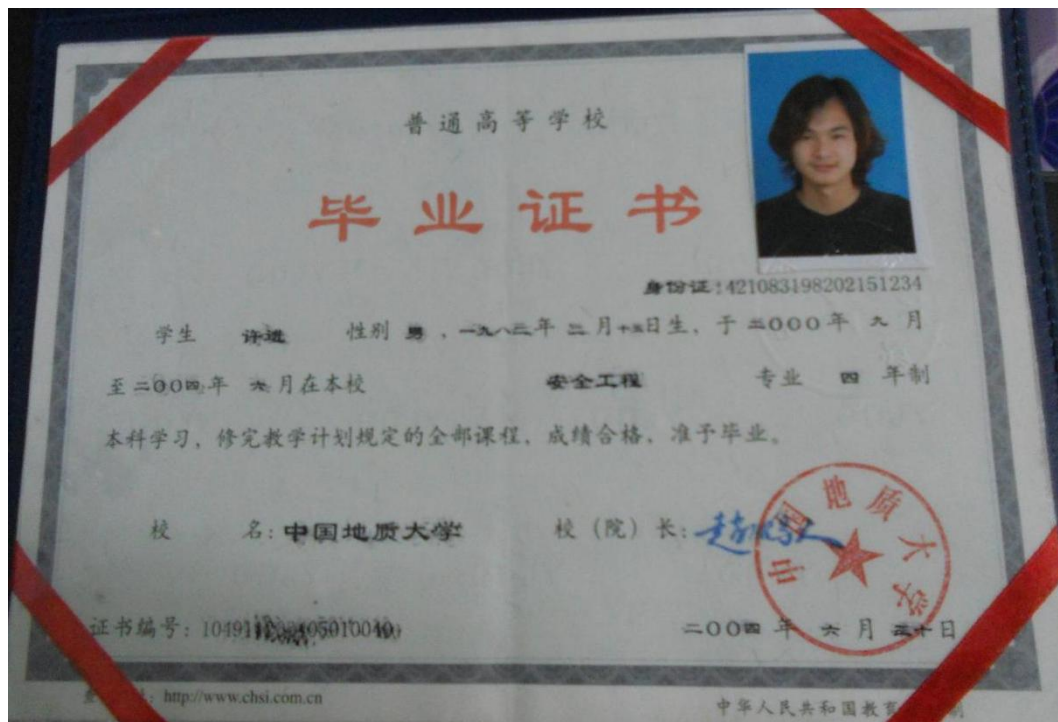 普通高等学校
毕业证书
身份证:421083198202151234
学生 许进 性别 男 , 一九八二年 二 月十五日生, 于 二000年 九 月
至二00四年 六 月在本校 安全工程 专业 四 年制
本科学习, 修完教学计划规定的全部课程, 成绩合格, 准予毕业。
校 名: 中国地质大学 校 (院) 长:
中国地质大学
证书编号:
二00四 年 六 月 三十日
http://www.chsi.com.cn
中华人民共和国教育